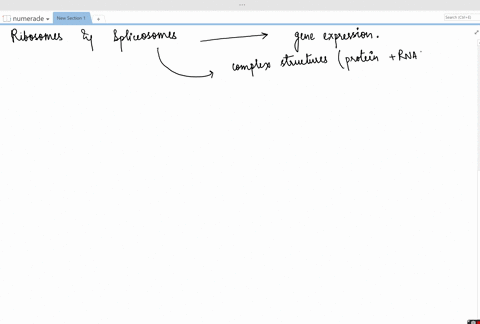 numerade
New Section 1
Search (Ctrl+E)
Ribosomes & Spliceosomes → gene expression.
complex structures (protein + RNA